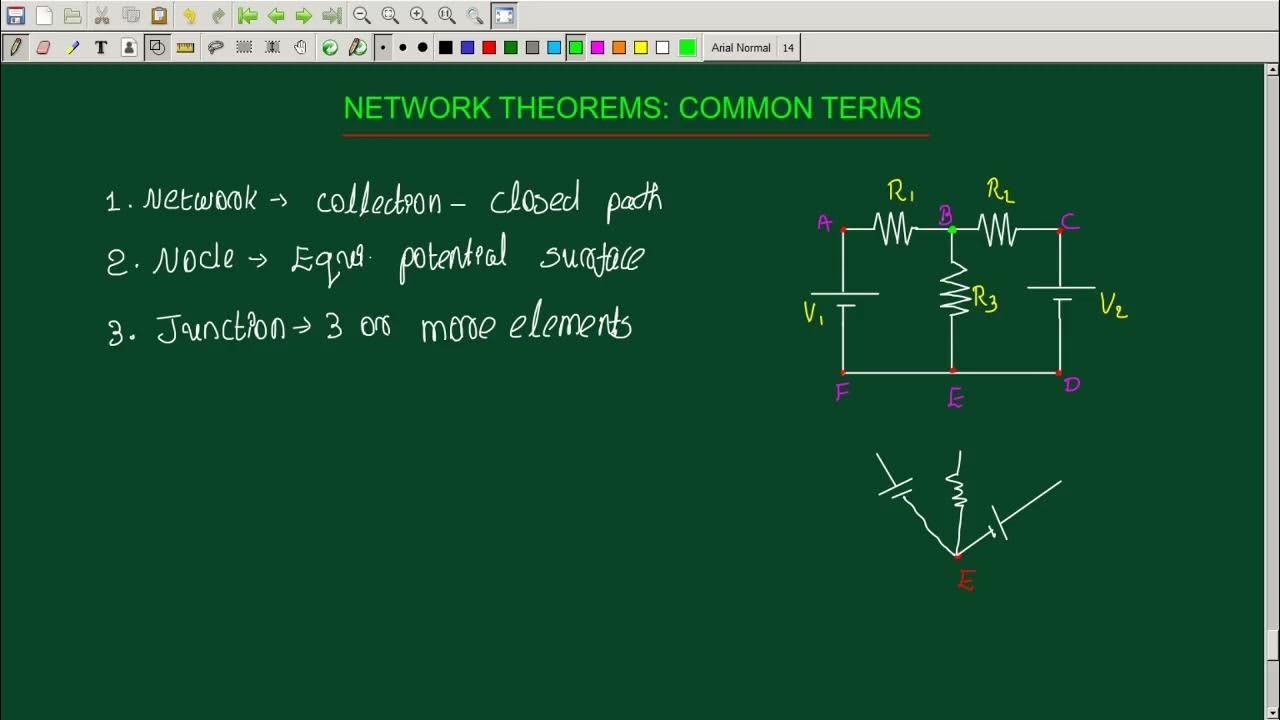 T
1:1
Arial Normal 14
NETWORK THEOREMS: COMMON TERMS
1. Network → collection - closed path
2. Node → Equi. potential surface
3. Junction → 3 or more elements
R1 R2
A B C
R3
V1 V2
F E D
E